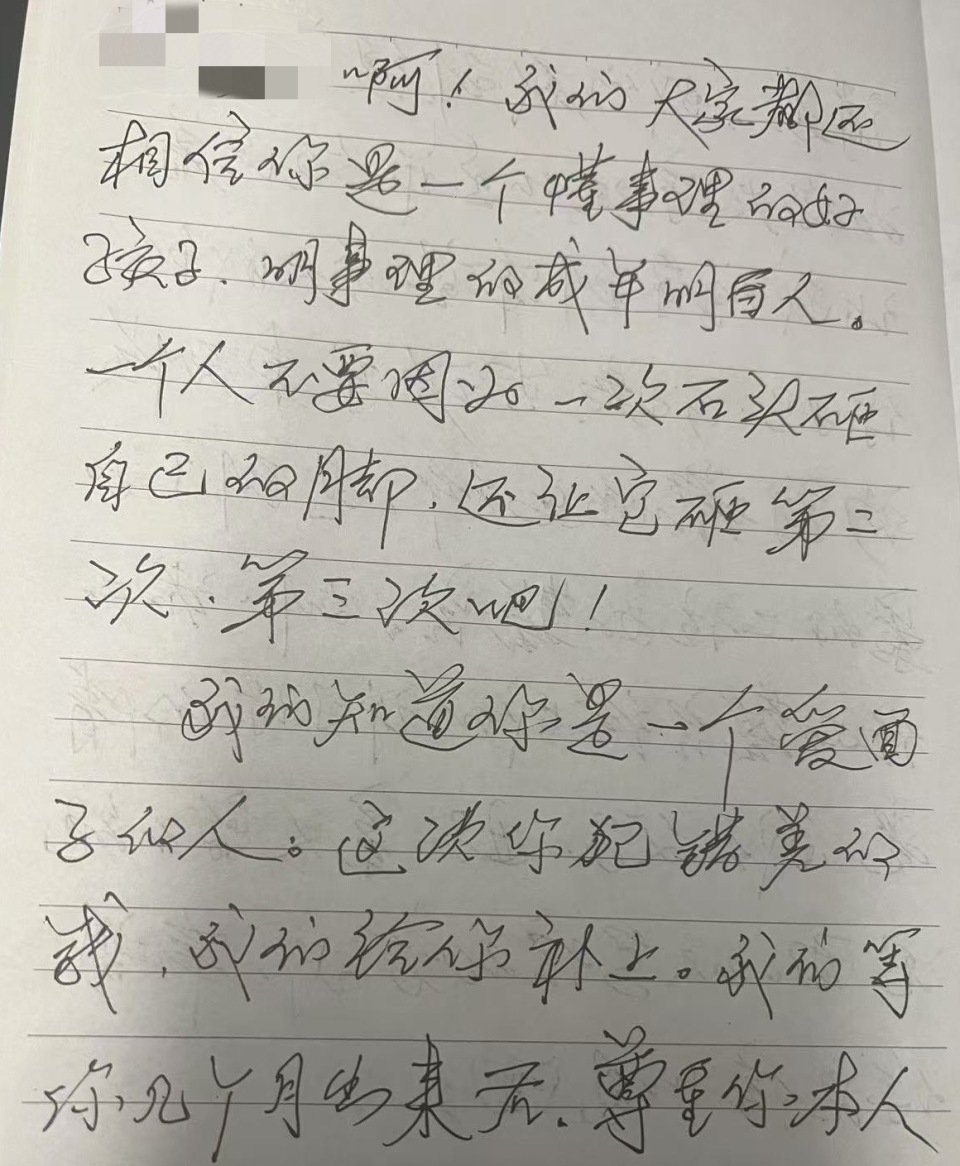 啊！我们大家都还
相信你是一个懂事理的好
孩子.明事理的成年明白人。
一个人不要因为一次石头砸
自己的脚.还让它砸第二
次.第三次吧！
我们知道你是一个爱面
子的人。这次你犯错差的
钱,我们给你补上。我们等
你几个月出来后.尊重你本人